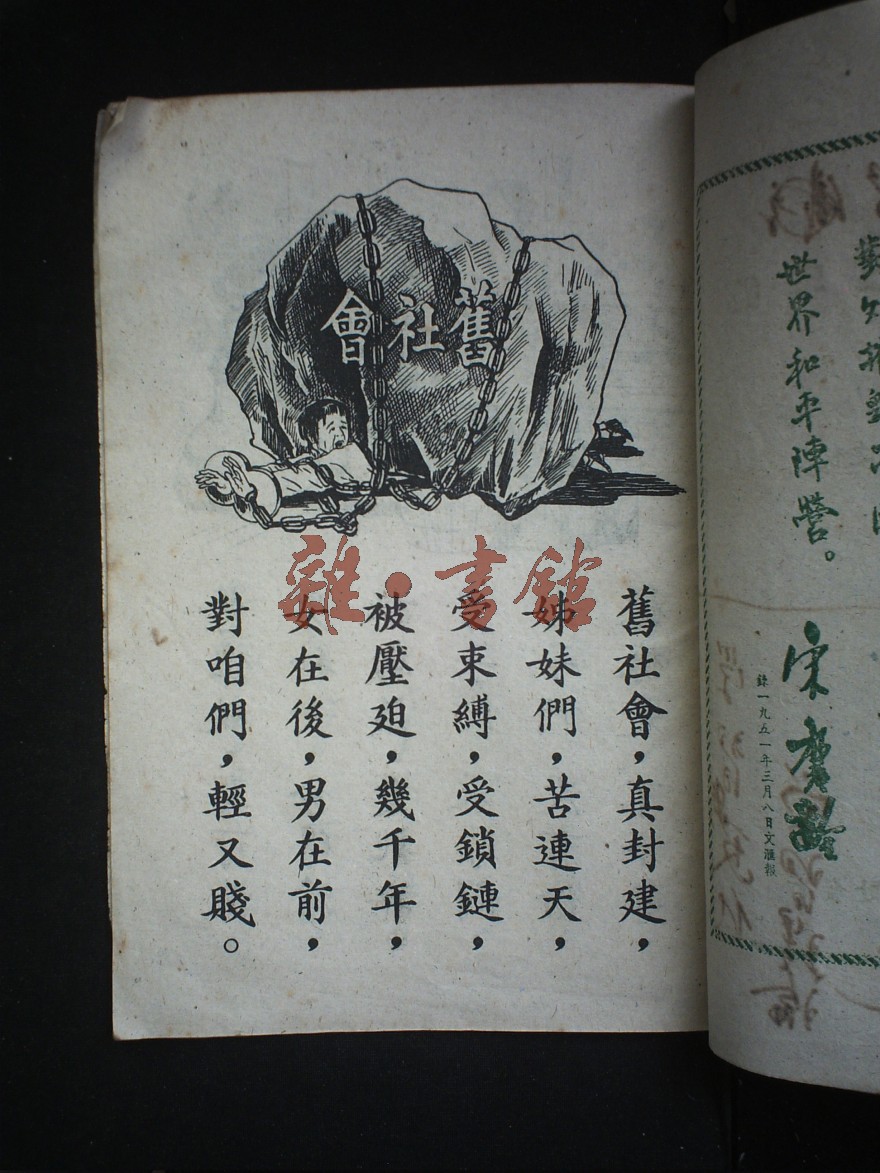 舊社會
舊社會，真封建，
姊妹們，苦連天，
受束縛，受鎖鏈，
被壓廹，幾千年，
女在後，男在前，
對咱們，輕又賤。
雜·書館
世界和平陣營。
宋慶齡
錄一九五一年三月八日文滙報